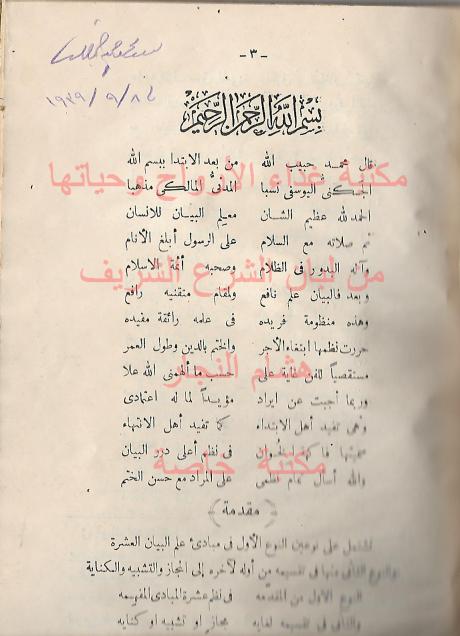 ١٩٣٩/٩/٨٢
- ٣ -
بسم الله الرحمن الرحيم
قال محمد حبيب الله من بعد الابتدا ببسم الله
مكتبة غذاء الأرواح وحياتها
الجكنى اليوسفى نسبا المدنى المالكى مذهبا
الحمد لله عظيم الشان معلم البيان للانسان
ثم صلاته مع السلام على الرسول أبلغ الأنام
وآله البدور فى الظلام وصحبه أئمة الاسلام
من لبان الشرع الشريف
وبعد فالبيان علم نافع ولمقام متقنيه رافع
وهذه منظومة فريده فى علمه رائقة مفيده
حررت نظمها ابتغاء الأجر والختم بالدين وطول العمر
هشام النجار
مستقصيا للفن غاية على حسب ما ألهمنى الله علا
وربما أجبت عن ايراد مؤيداً لما له اعتمادى
وهى تفيد أهل الابتداء كما تفيد أهل الانتهاء
سميتها فى نظم أعلى درر البيان
مكتبة خاصة
والله أسأل تمام نظمى على المراد مع حسن الختم
﴿ مقدمة ﴾
تشتمل على نوعين النوع الأول فى مبادئ علم البيان العشرة
والنوع الثانى منها فى تقسيمه من أوله لآخره إلى المجاز والتشبيه والكناية
النوع الأول من المقدمه فى نظم عشرة المبادى المفهمه
والثانى فى تقسيمه لغايه مجاز او تشبيه او كنايه